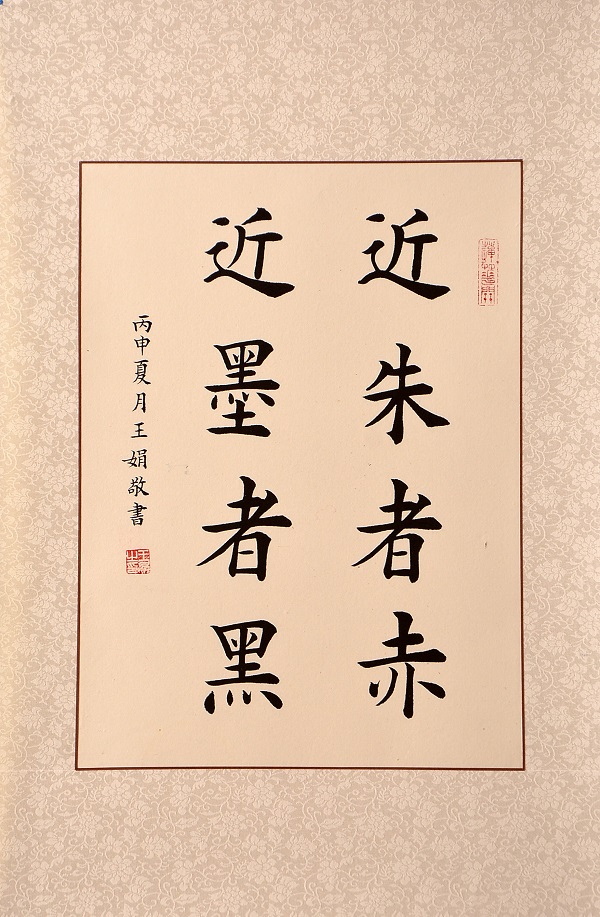 近朱者赤
近墨者黑
丙申夏月王娟敬書